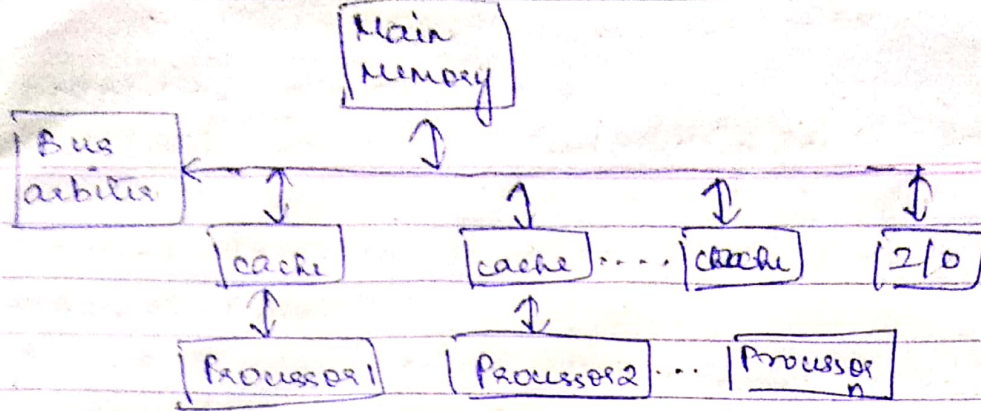 Main
Memory
Bus
arbiter
cache
cache
.....
cache
I/O
Processor1
Processor2
...
Processor
n